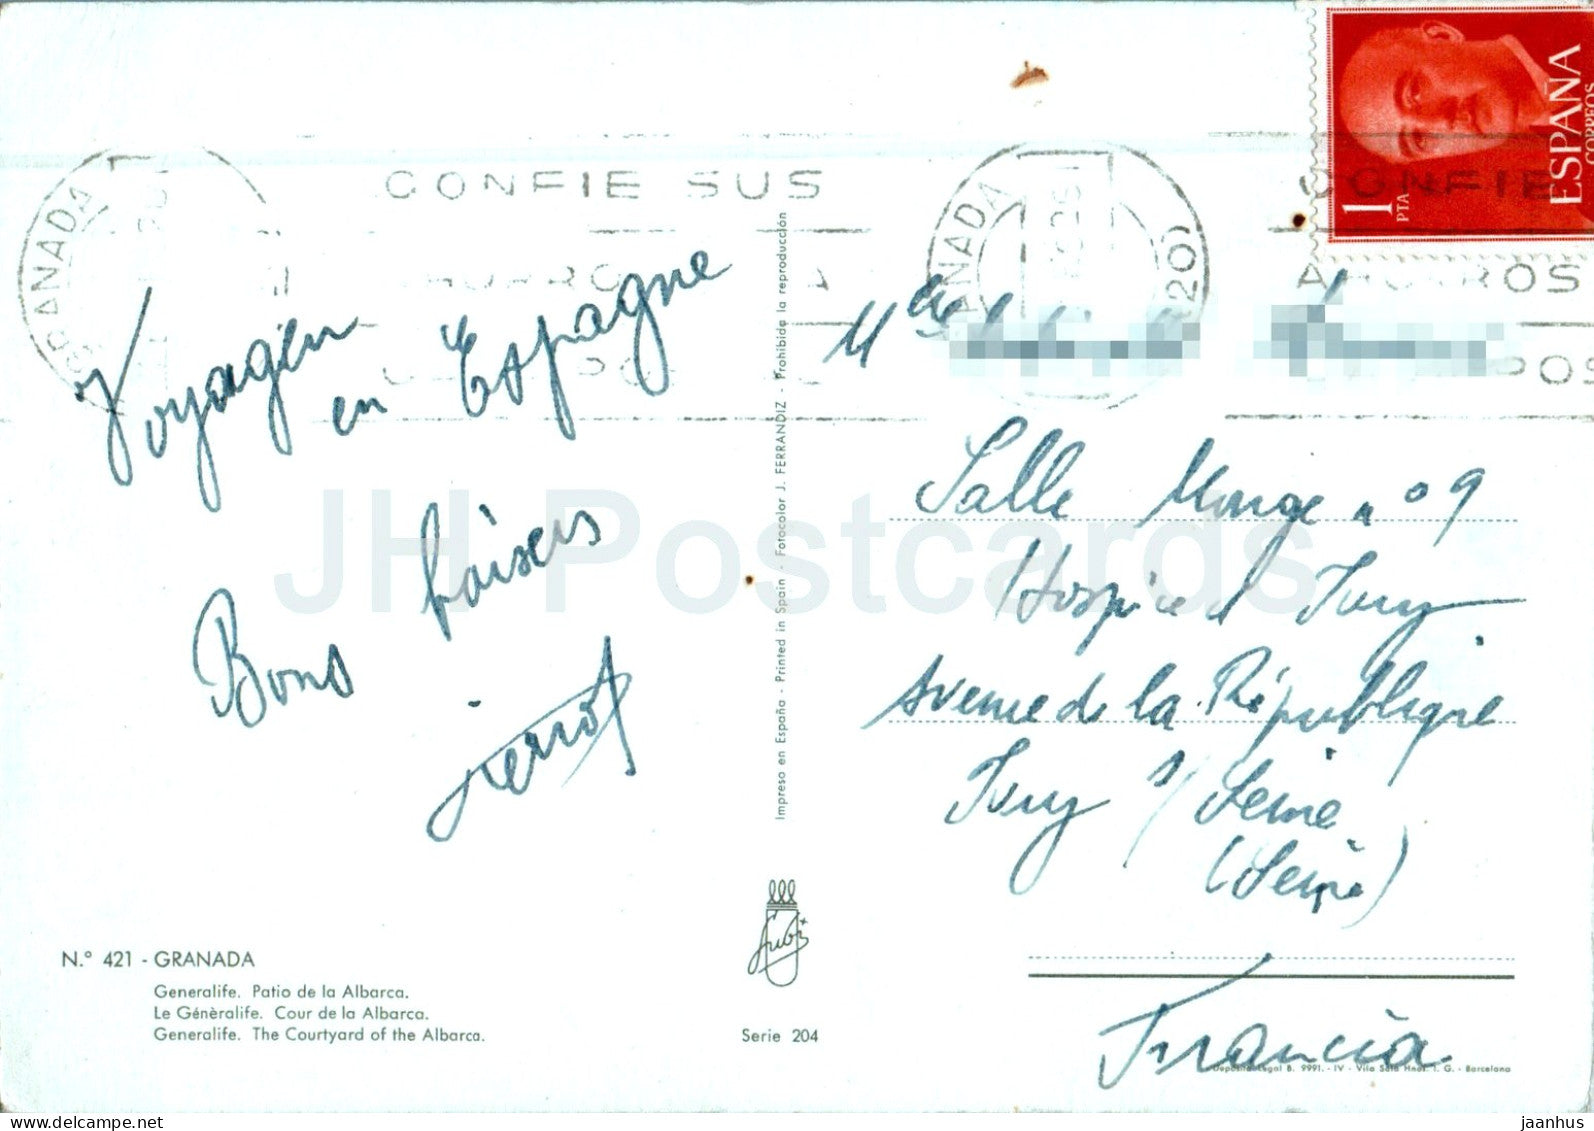 GRANADA
CONFIE SUS
GRANADA
CONFIE
AHORROS
1 PTA
ESPAÑA
CORREOS
Voyage en
en Espagne
Bons baisers
Pierrot
Salle Monge n° 9
Hospice d'Ivry
Avenue de la République
Ivry s/ Seine
(Seine)
Francia
N.º 421 - GRANADA
Generalife. Patio de la Albarca.
Le Génèralife. Cour de la Albarca.
Generalife. The Courtyard of the Albarca.
Impreso en España - Printed in Spain - Fotocolor J. FERRANDIZ - Prohibida la reproducción
Subi
Serie 204
Depósito Legal B. 9991. - IV - Vila Soló Hnos. I. G. - Barcelona
JH Postcards
jaanhus
delcampe.net